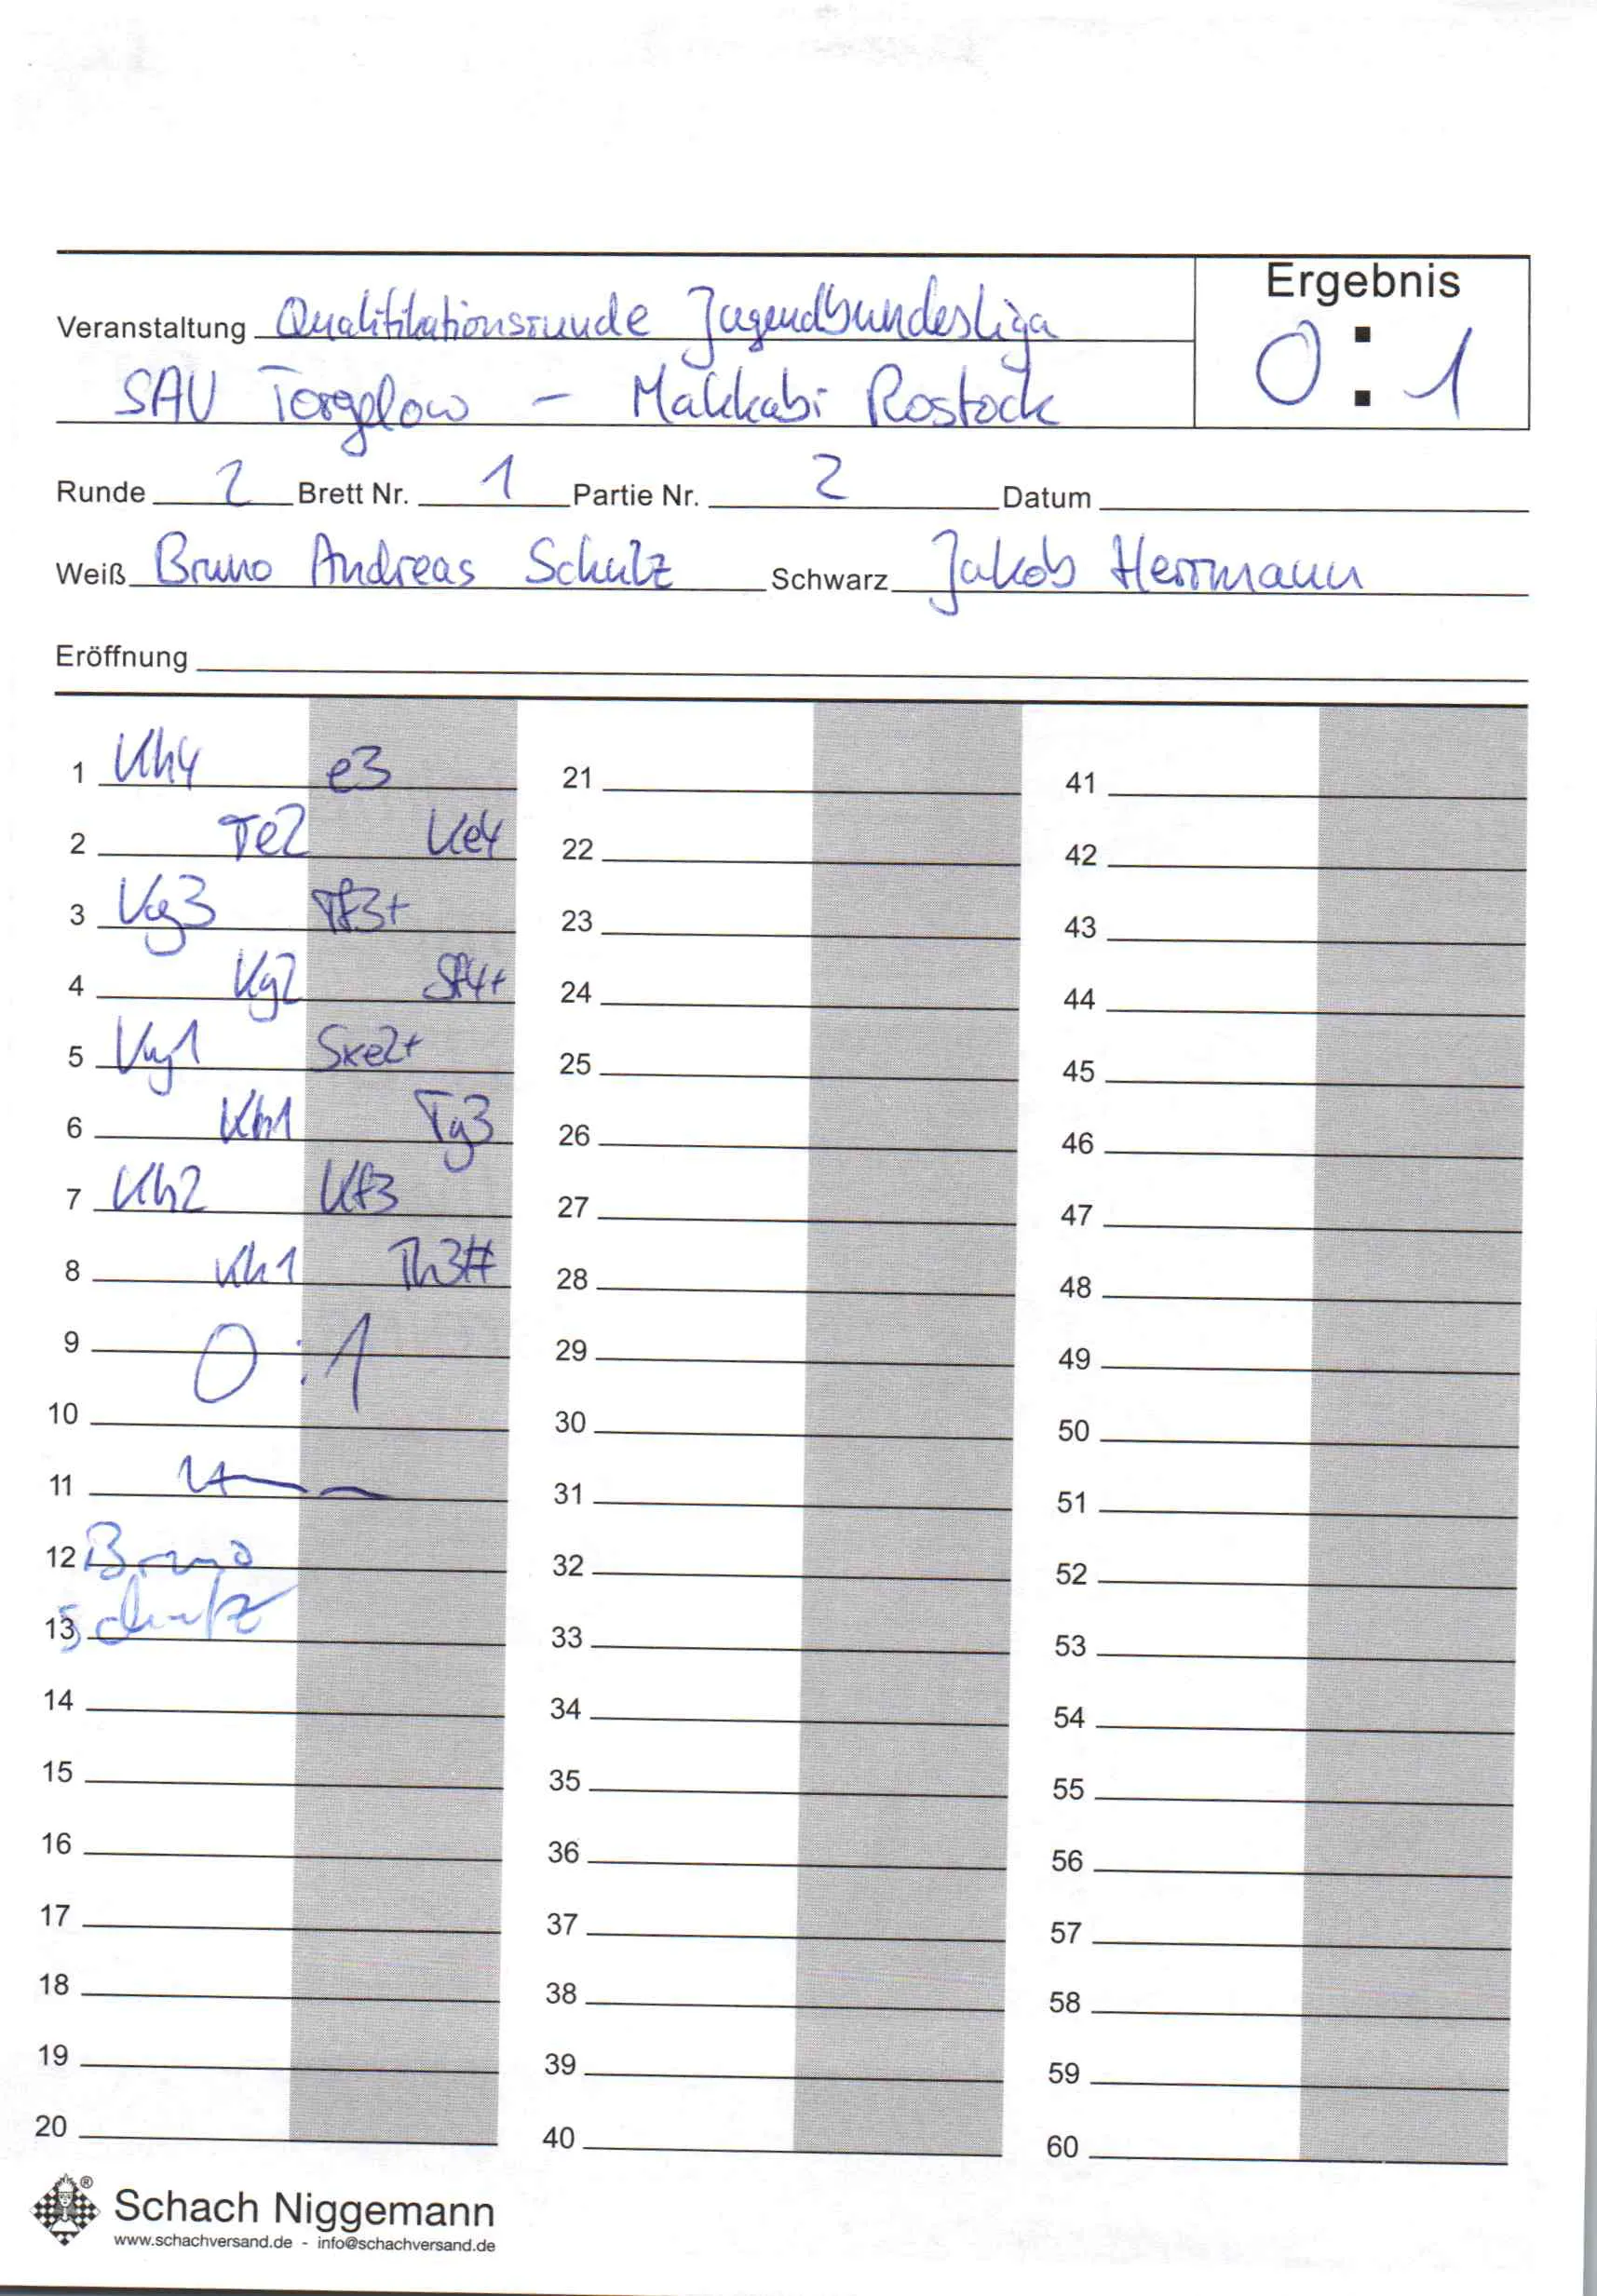 Ergebnis
Veranstaltung Qualifikationsrunde Jugendbundesliga
SAV Torgelow - Makkabi Rostock
0 : 1
Runde 2 Brett Nr. 1 Partie Nr. 2 Datum
Weiß Bruno Andreas Schulz Schwarz Jakob Herrmann
Eröffnung
1 Kh4 e3 21 41
2 Te2 Ke4 22 42
3 Kg3 Tf3+ 23 43
4 Kg2 Sf4+ 24 44
5 Kg1 Sxe2+ 25 45
6 Kh1 Tg3 26 46
7 Kh2 Kf3 27 47
8 Kh1 Th3# 28 48
9 0 : 1 29 49
10 30 50
11 31 51
12 Bruno 32 52
13 Schulz 33 53
14 34 54
15 35 55
16 36 56
17 37 57
18 38 58
19 39 59
20 40 60
® Schach Niggemann
www.schachversand.de - info@schachversand.de